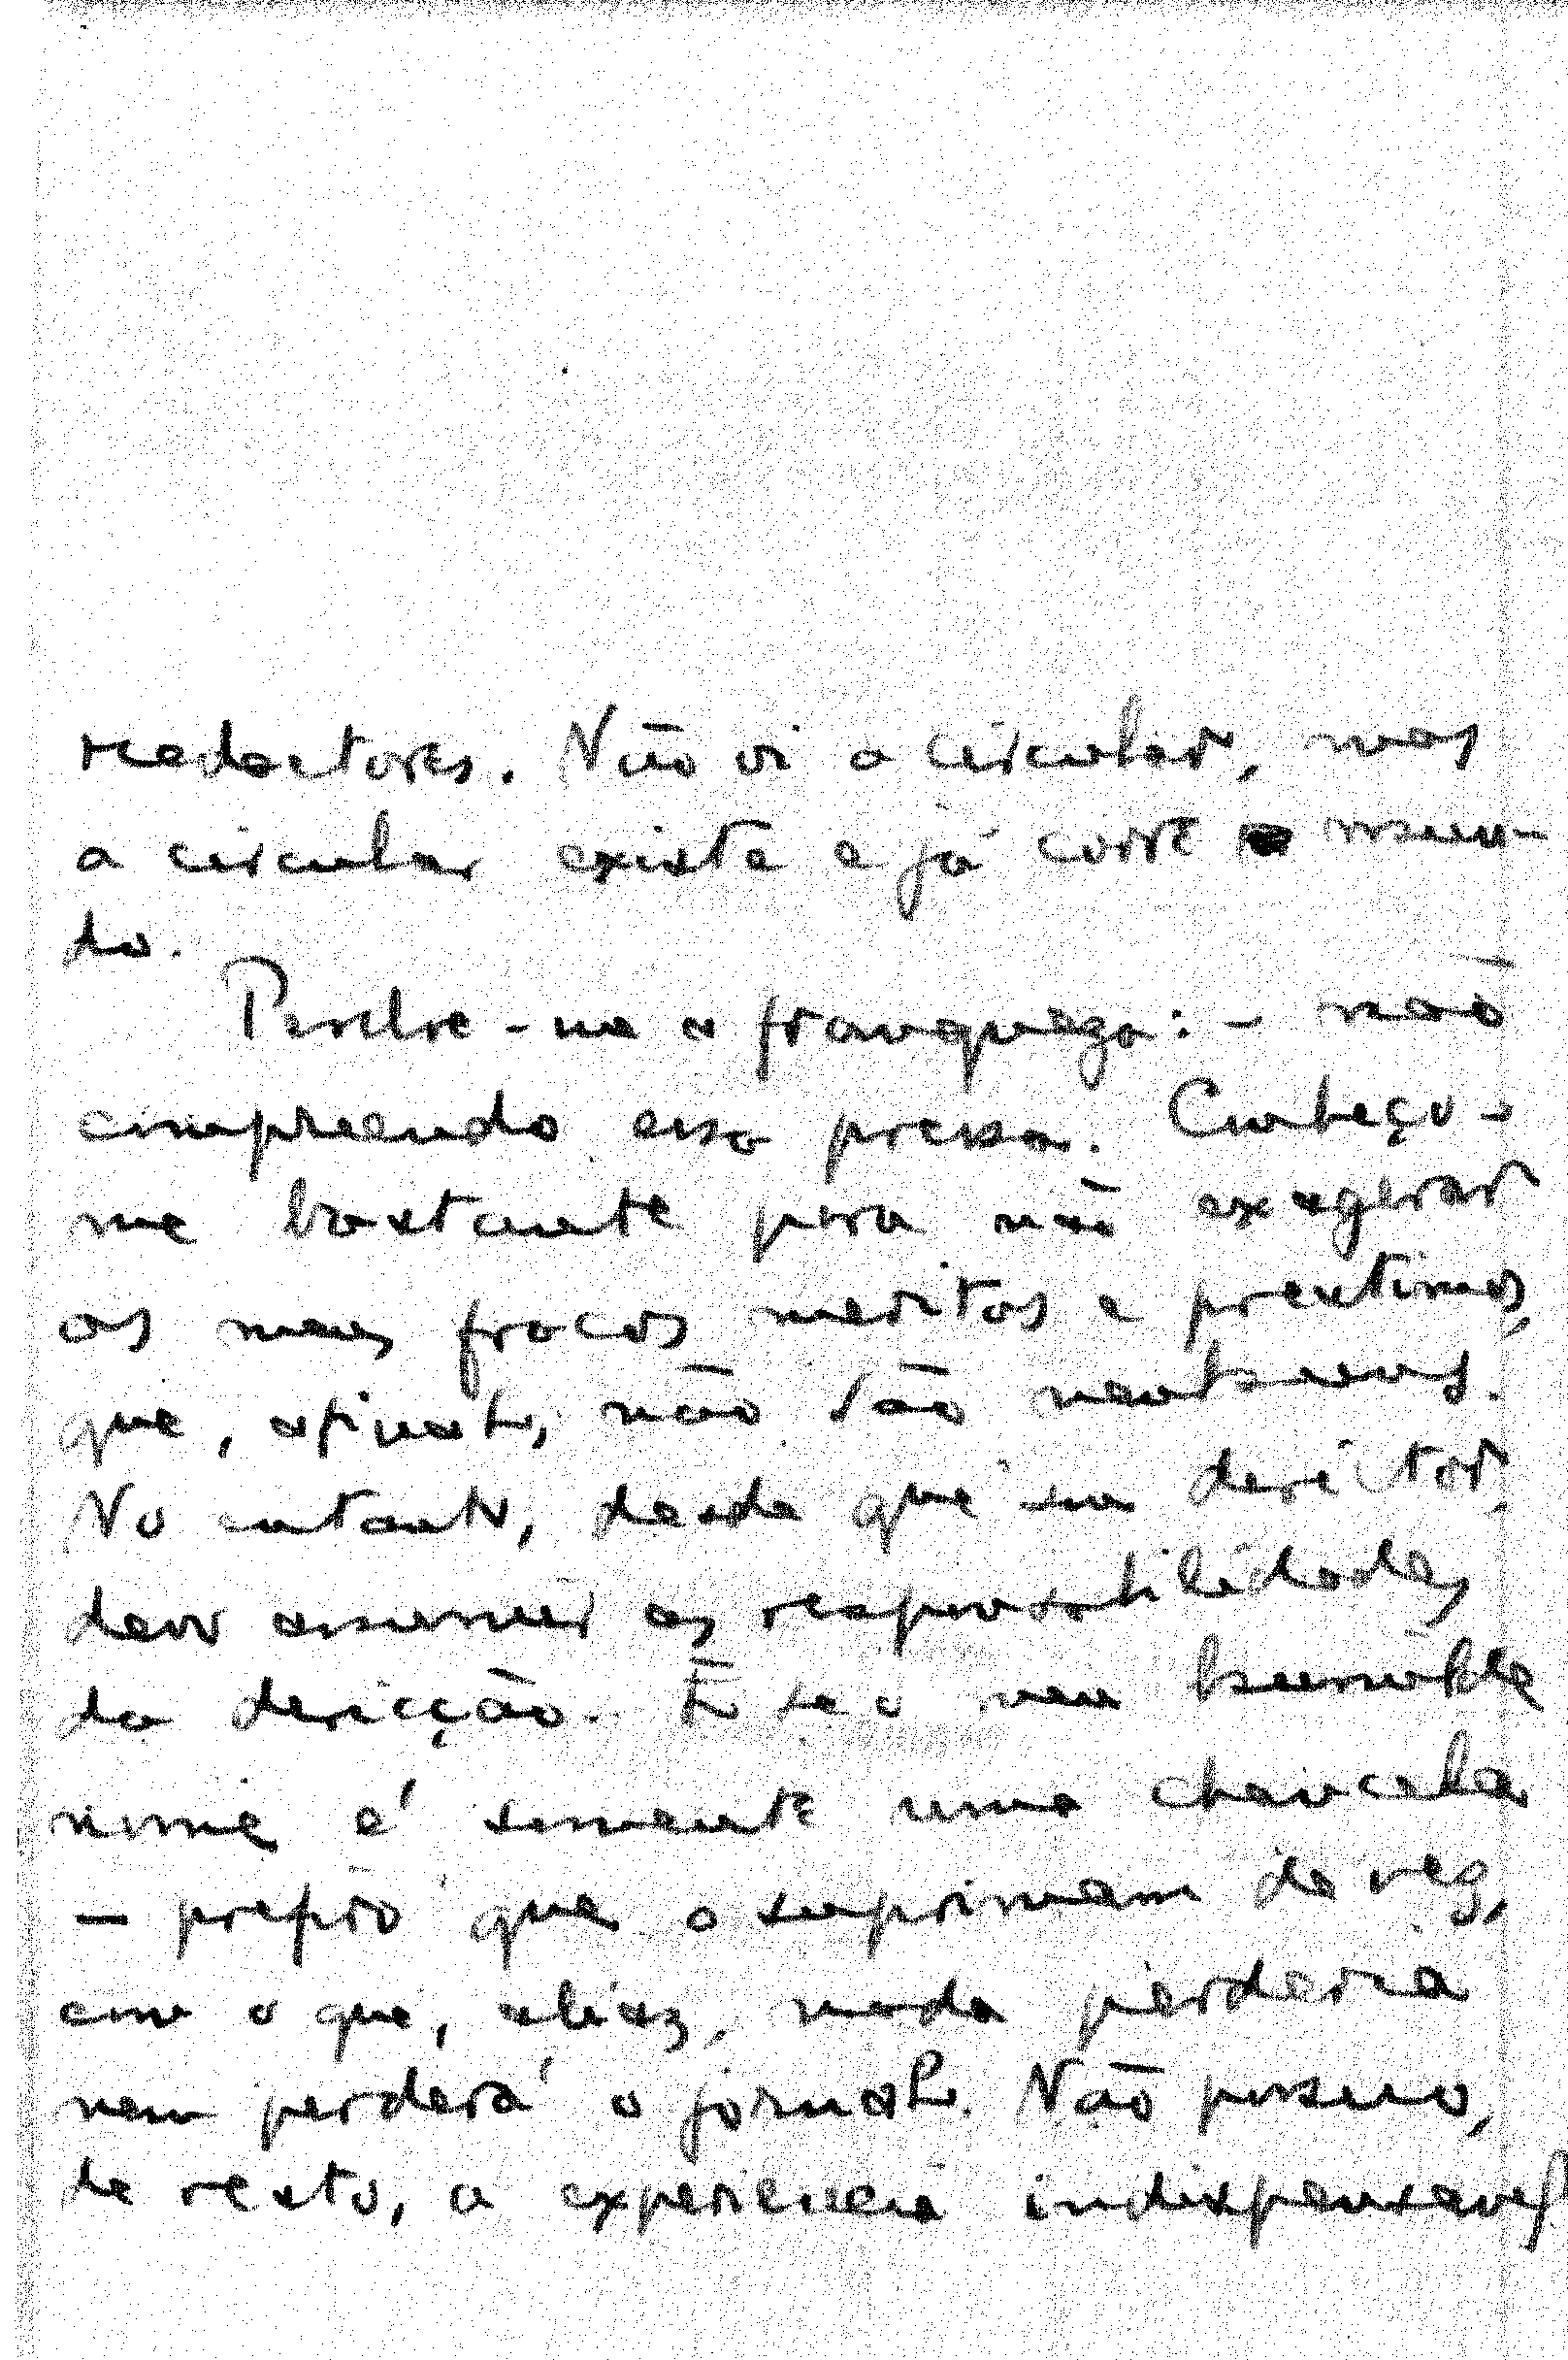 redactores. Não vi a circular, mas
a circular existe e já corre mun-
do.
Perdoe-me a franqueza: - não
comprehendo essa pressa. Conheço-
me bastante para não exagerar
os meus fracos meritos e prestimos,
que, afinal, não são nenhuns.
No entanto, desde que sou director,
devo assumir as responsabilidades
da direcção. E se o meu humilde
nome é somente uma chancela
- prefiro que o suprimam de vez,
com o que, aliaz, nada perderia
nem perderá o jornal. Não possuo,
de resto, a experiencia indispensavel